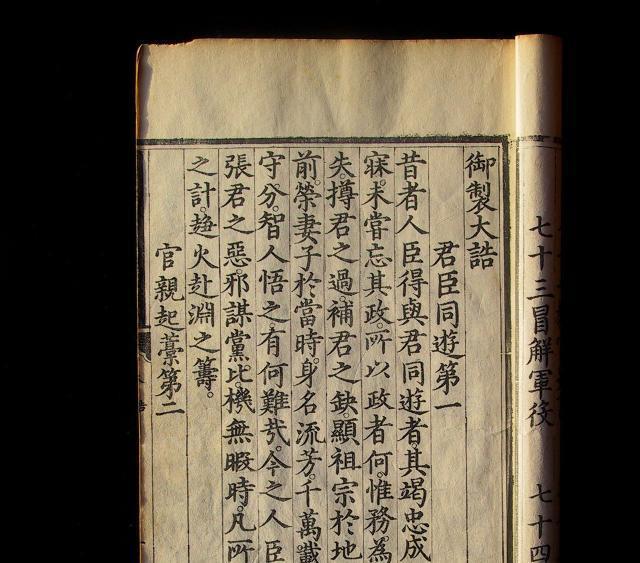 七十三冒解軍役 七十四
御製大誥
君臣同遊第一
昔者人臣得與君同遊者。其竭忠成
寐。未嘗忘其政。所以政者何。惟務為
失。撙君之過。補君之缺。顯祖宗於地
前。榮妻子於當時。身名流芳。千萬載
守分。智人悟之。有何難㢤。今之人臣
張君之惡。邪謀黨比。機無暇時。凡所
之計。趨火赴淵之籌。
官親起藁第二